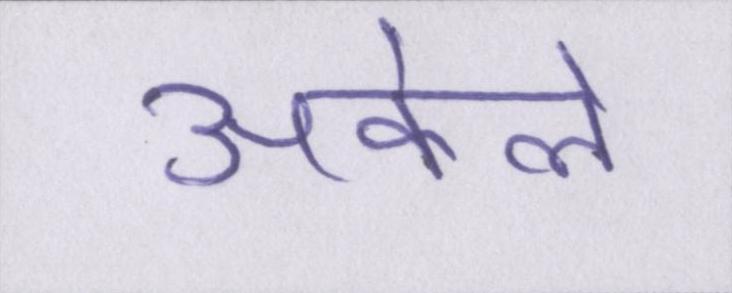 अकेले